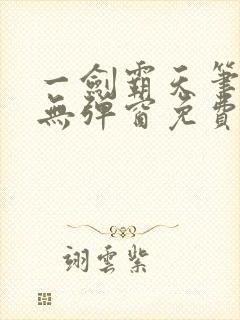 一劍霸天筆
無彈窗免費
翊雲紫